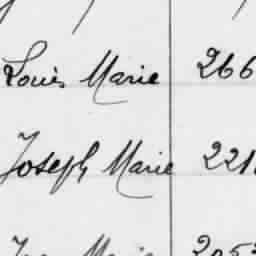 Louis Marie 266
Joseph Marie 221
Marie 205